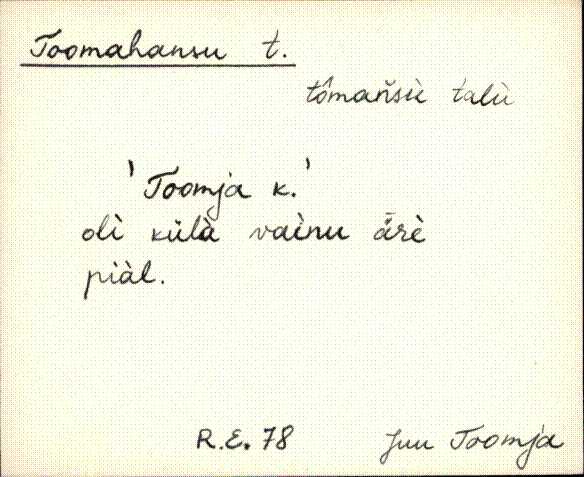 Toomahansu t.
tômaňsù talù
'Toomja k.'
olì külà vainu ä̆rè
piàl.
R.E. 78 Juu Toomja